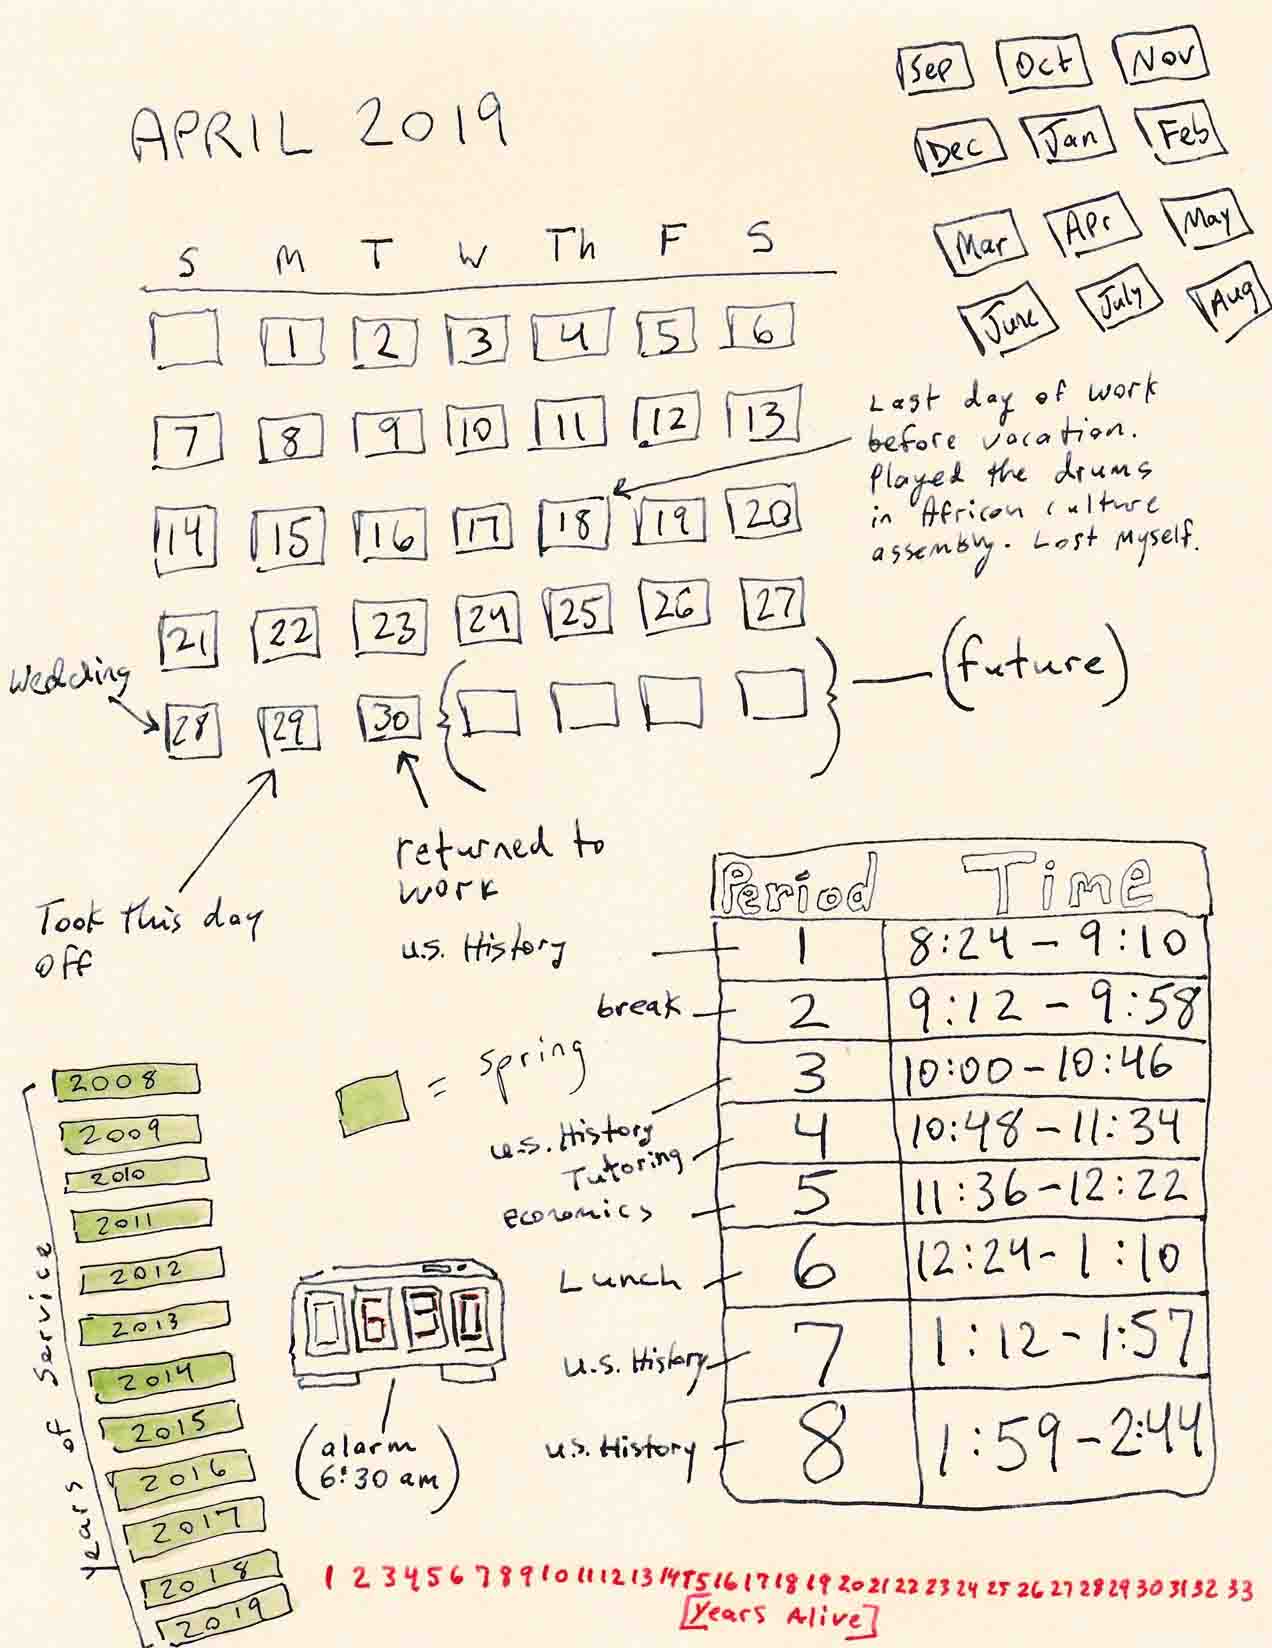 APRIL 2019
Sep Oct Nov
Dec Jan Feb
Mar Apr May
June July Aug
S M T W Th F S
1 2 3 4 5 6
7 8 9 10 11 12 13
14 15 16 17 18 19 20
21 22 23 24 25 26 27
28 29 30
Last day of work
before vacation.
Played the drums
in African culture
assembly. Lost Myself.
Wedding
(future)
Took this day
off
returned to
work
Period Time
U.S. History 1 8:24 - 9:10
break 2 9:12 - 9:58
U.S. History 3 10:00 - 10:46
Tutoring 4 10:48 - 11:34
economics 5 11:36 - 12:22
Lunch 6 12:24 - 1:10
U.S. History 7 1:12 - 1:57
U.S. History 8 1:59 - 2:44
= spring
Years of Service
2008
2009
2010
2011
2012
2013
2014
2015
2016
2017
2018
2019
0630
(alarm
6:30 am)
1 2 3 4 5 6 7 8 9 10 11 12 13 14 15 16 17 18 19 20 21 22 23 24 25 26 27 28 29 30 31 32 33
[Years Alive]